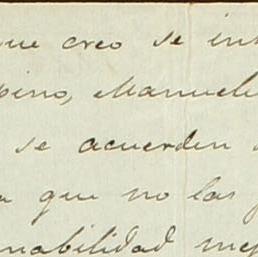 que creo se int
pino, Manuel
se acuerden
a que no las
nabilidad me